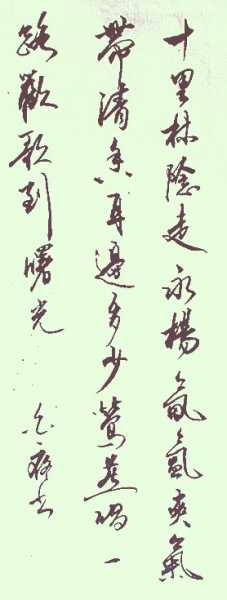 十里林陰走永楊氤氳爽氣
帶清香耳邊多少鶯燕唱一
路歡歌到曙光